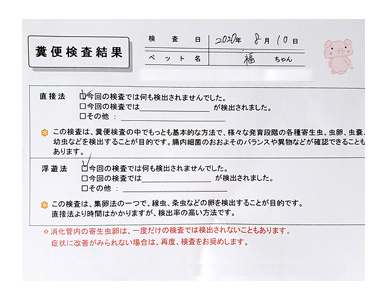 糞便検査結果
検査日 2020年 8月10日
ペット名 福 ちゃん
直接法 ☑今回の検査では何も検出されませんでした。
□今回の検査では が検出されました。
□その他：
この検査は、糞便検査の中でもっとも基本的な方法で、様々な発育段階の各種寄生虫、虫卵、虫嚢、
幼虫などを検出することが目的です。腸内細菌のおおよそのバランスや異物などが確認できることも
あります。
浮遊法 ☑今回の検査では何も検出されませんでした。
□今回の検査では が検出されました。
□その他：
この検査は、集卵法の一つで、線虫、条虫などの卵を検出することが目的です。
直接法より時間はかかりますが、検出率の高い方法です。
☆消化管内の寄生虫卵は、一度だけの検査では検出されないこともあります。
症状に改善がみられない場合は、再度、検査をお奨めします。